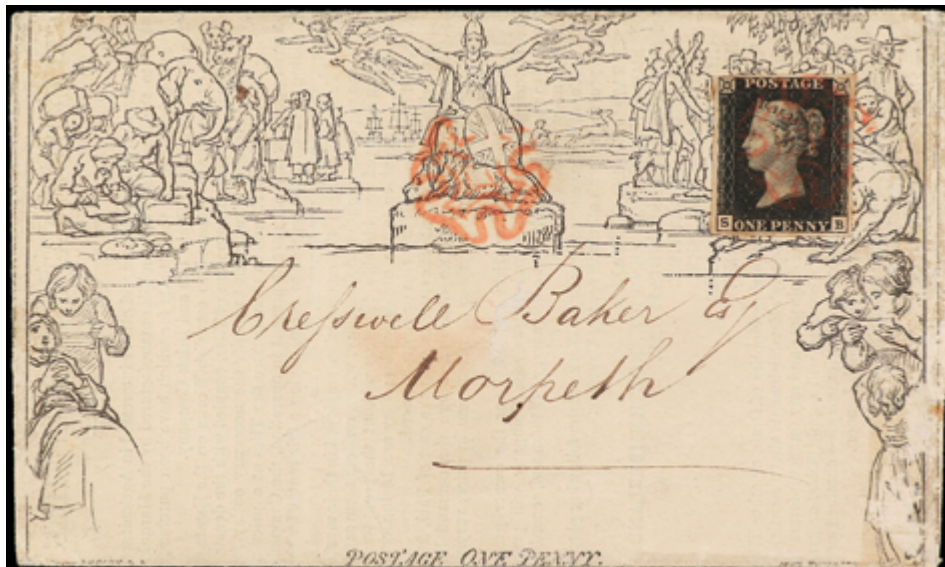 POSTAGE
S ONE PENNY B
Creſswell Baker Esq
Morpeth
POSTAGE ONE PENNY.